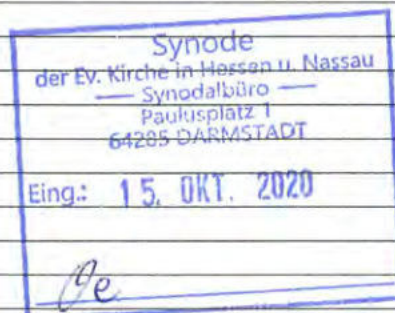 Synode
der Ev. Kirche in Hessen u. Nassau
— Synodalbüro —
Paulusplatz 1
64285 DARMSTADT
Eing.: 15. OKT. 2020